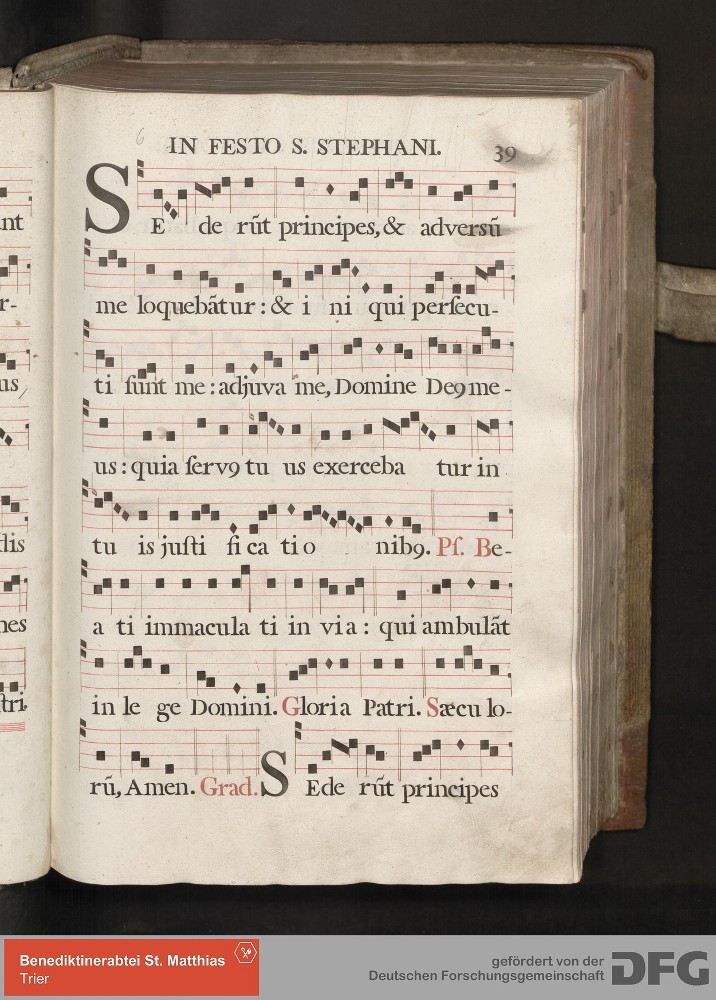 6
IN FESTO S. STEPHANI.
39
SE de rũt principes, & adversũ
me loquebãtur : & i ni qui perſecu-
ti ſunt me : adjuva me, Domine De9 me -
us : quia ſerv9 tu us exerceba tur in
tu is juſti fi ca ti o nib9. Pſ. Be-
a ti immacula ti in via : qui ambulãt
in le ge Domini. Gloria Patri. Sæcu lo-
rũ, Amen. Grad. SEde rũt principes
nt
r-
us,
dis
nes
ſtri.
Benediktinerabtei St. Matthias
Trier
gefördert von der
Deutschen Forschungsgemeinschaft
DFG